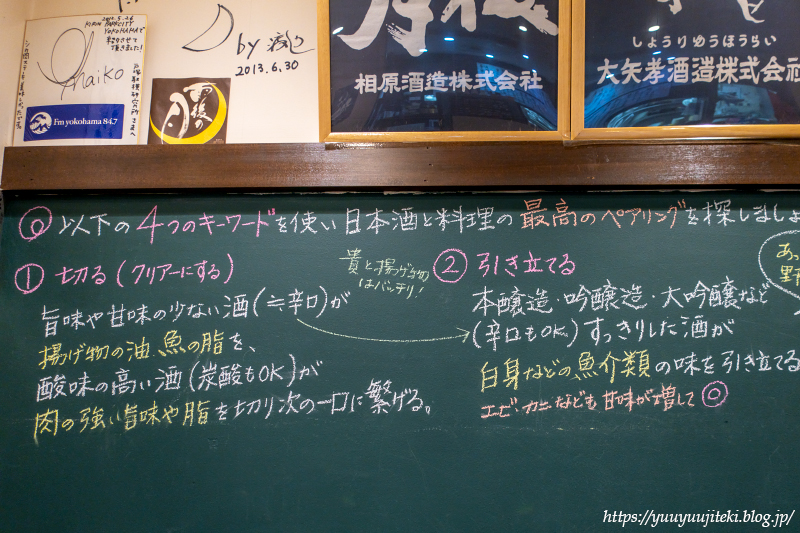 2013.5.26
KIRIN BEERCITY
YOKOHAMAで
Maiko
Fm yokohama 84.7
雨後の月
by
2013.6.30
相原酒造株式会社
しょうりゆうほうらい
大矢孝酒造株式会
◎以下の4つのキーワードを使い日本酒と料理の最高のペアリングを探しましょ
① 切る(クリアーにする)
旨味や甘味の少ない酒(≒辛口)が
揚げ物の油、魚の脂を、
酸味の高い酒(炭酸もOK)が
肉の強い旨味や脂を切り次の一口に繋げる。
貴と揚げ物
はバッチリ!
② 引き立てる
本醸造・吟醸造・大吟醸など
(辛口もOK)すっきりした酒が
白身などの魚介類の味を引き立てる
エビ・カニなども甘味が増して◎
あっ
https://yuuyuujiteki.blog.jp/